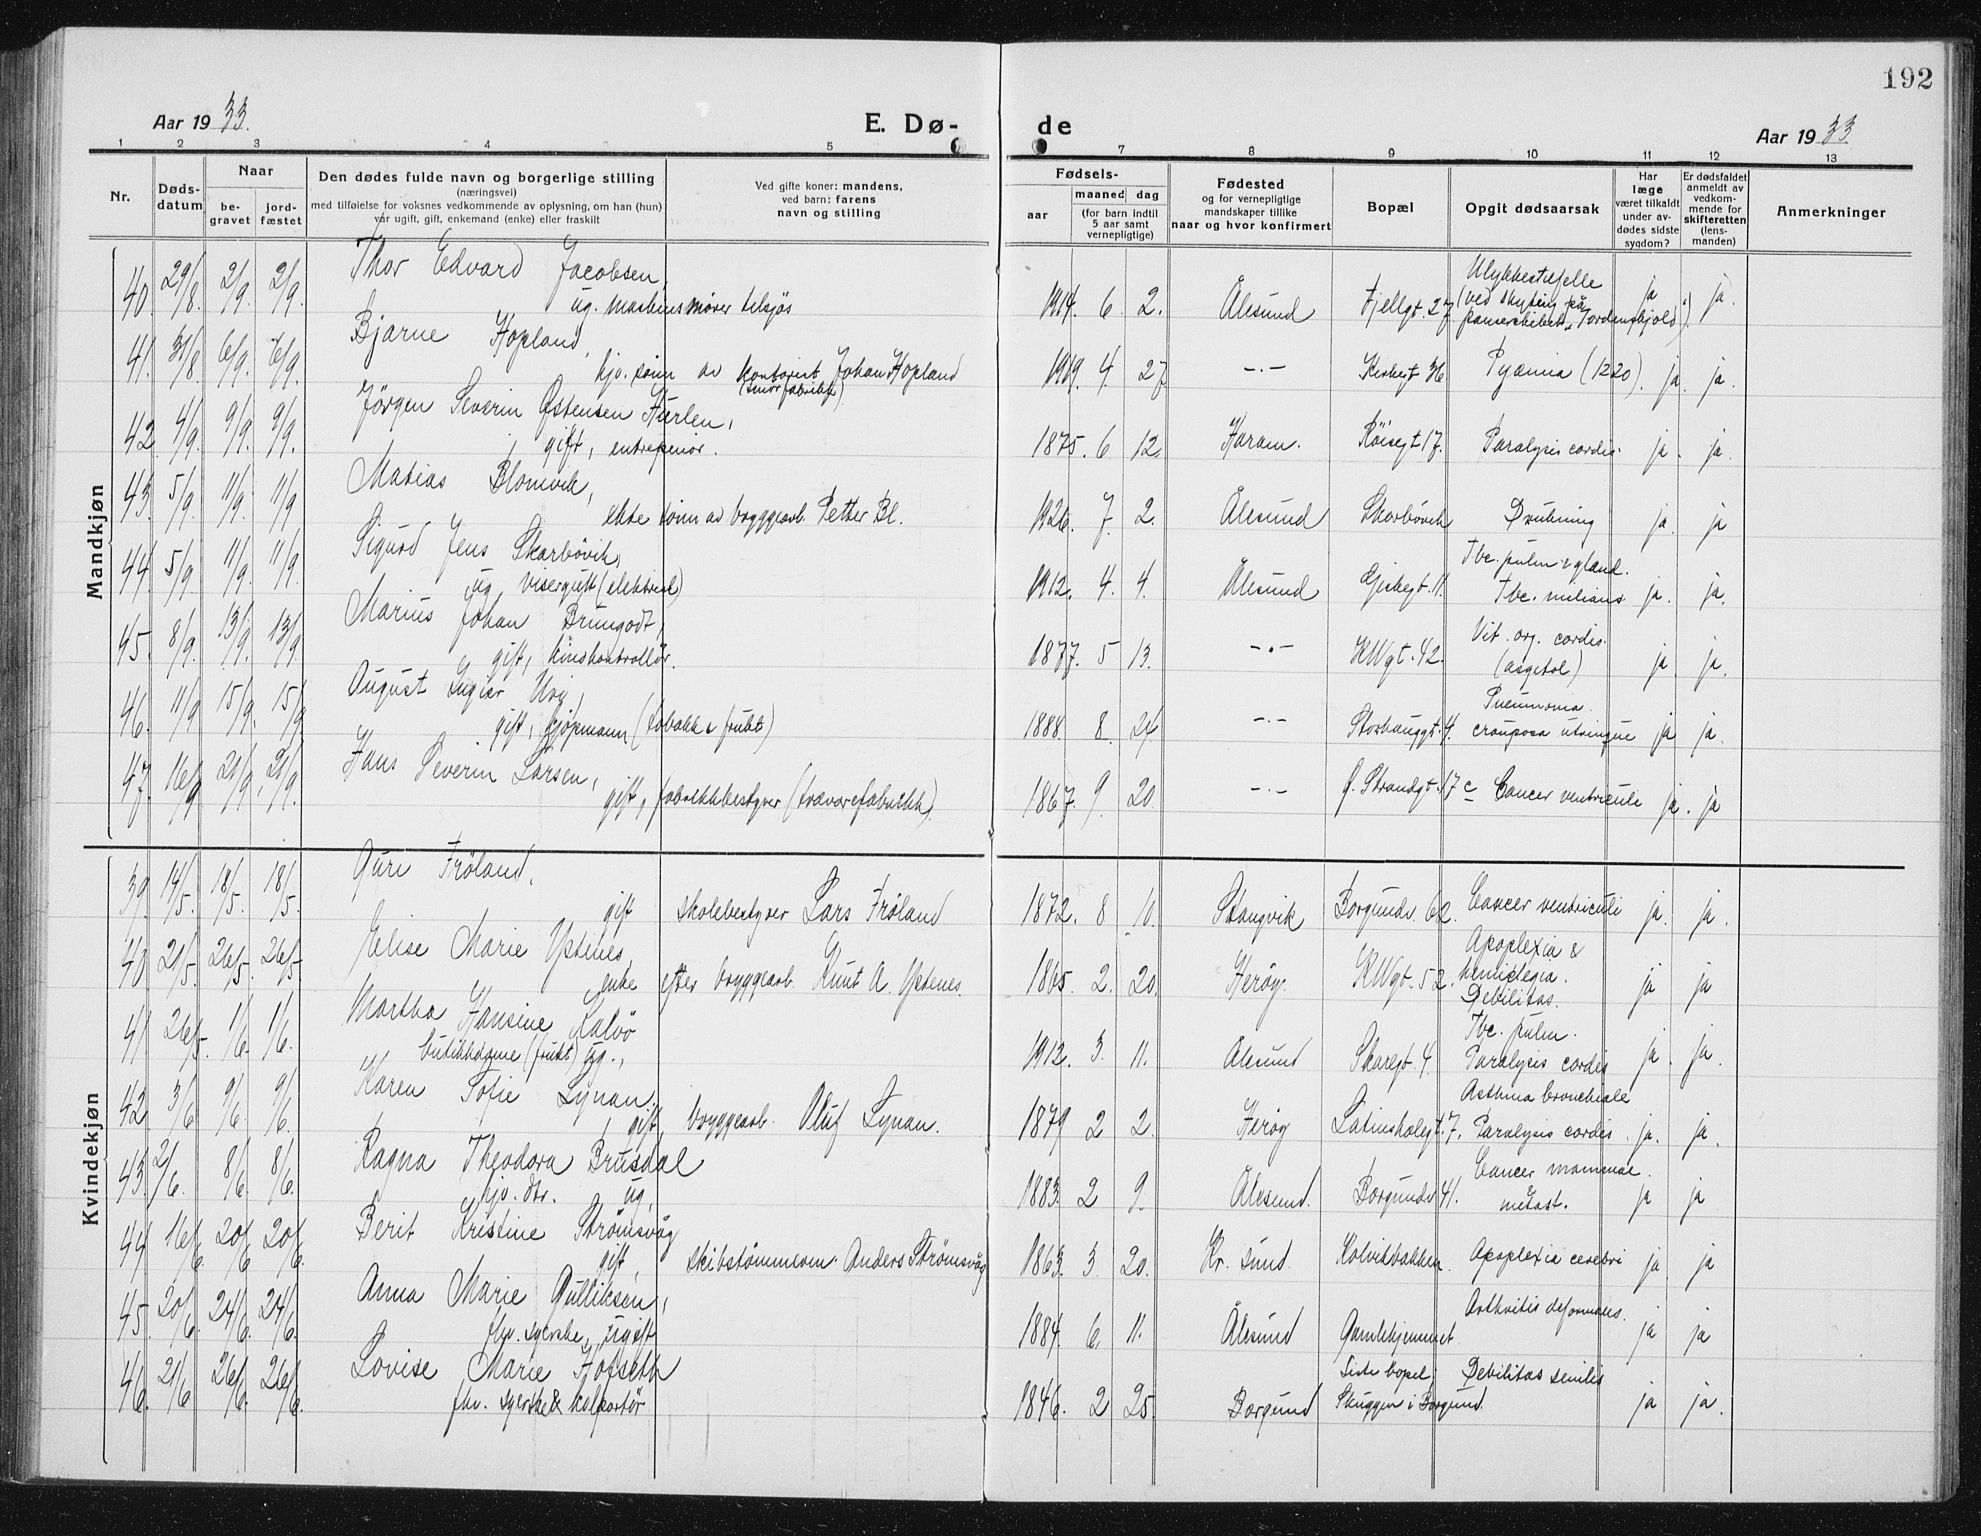 192
Aar 1933.
E. Dø-
de
Aar 1933.
1 2 3 4 5 7 8 9 10 11 12 13
Nr.
Døds-
datum
Naar
be-
gravet
jord-
fæstet
Den dødes fulde navn og borgerlige stilling
(næringsvei)
med tilføielse for voksnes vedkommende av oplysning, om han (hun)
var ugift, gift, enkemand (enke) eller fraskilt
Ved gifte koner: mandens,
ved barn: farens
navn og stilling
Fødsels-
aar
maaned
dag
(for barn indtil
5 aar samt
vernepligtige)
Fødested
og for vernepligtige
mandskaper tillike
naar og hvor konfirmert
Bopæl
Opgit dødsaarsak
Har
læge
været tilkaldt
under av-
dødes sidste
sygdom?
Er dødsfaldet
anmeldt av
vedkom-
mende for
skifteretten
(lens-
manden)
Anmerkninger
Mandkjøn
40. 29/8. 2/9. 2/9. Thor Edvard Jacobsen,
ug. maskinsmører tilsjøs
1914. 6. 2. Ålesund Fjellgt. 27. Ulykkestilfelle
(ved skyting på
panserskibet „Tordenskjold") ja ja.
41. 31/8 6/9. 6/9. Bjarne Hopland,
hjv. sønn av kontorist Johan Hopland
(smørfabrikk)
1919. 4. 27 -.- Kirkegt 36. Pyæmia (1220). ja. ja.
42. 4/9. 9/9. 9/9. Jørgen Severin Østensen Hurlen,
gift, entreprenør.
1875. 6 12. Haram. Röisegt 17. Paralysis cordis. ja. ja.
43. 5/9. 11/9. 11/9 Matias Blomvik,
ekte sønn av bryggearb. Petter Bl.
1926. 7. 2. Ålesund Skarbövik Drukning ja. ja
44. 5/9. 11/9. 11/9. Sigurd Jens Skarbövik,
ug. visergutt (elektrisk)
1912. 4. 4. Ålesund Gjskegt. 11. Tbc. pulm & gland.
Tbc. miliaris ja. ja.
45. 8/9. 13/9. 13/9. Marius Johan Brungodt,
gift, kinokontrollör.
1877. 5 13. -.- KWgt. 42. Vit. org. cordis.
(asystol) ja ja.
46. 11/9 15/9. 15/9 August Ingvar Urij,
gift, kjøpmann (tobakk & frukt)
1888. 8. 24. -.- Storhauggt. 4. Pneumonia
crouposa utrinque ja ja.
47. 16/9 21/9. 21/9. Hans Severin Larsen,
gift, fabrikkbestyrer (trævarefabrikk).
1867. 9. 20. -.- Ø. Strandgt. 17 c Cancer ventriculi ja. ja
Kvindekjøn
39. 14/5. 18/5. 18/5. Guri Fröland,
gift skolebestyrer Lars Fröland
1872. 8 10. Stangvik Borgundv. 62. Cancer ventriculi ja. ja.
40 21/5. 26/5. 26/5 Elise Marie Ystenes,
enke efter bryggearb. Knut A. Ystenes.
1865. 2. 20. Herøy. KWgt. 52. Apoplexia &
hemiplegia.
Debilitas. ja ja
41 26/5. 1/6. 1/6. Martha Hansine Kalvö
butikkdame (frukt) ug.,
1912. 3. 11. Ålesund Skaregt. 4. Tbc. pulm.
Paralysis cordis ja. ja.
42 3/6 9/6. 9/6. Karen Sofie Synan,
gift bryggearb. Oluf Synan.
1879 2 2. Herøy Latinskolegt. 7. Asthma bronchiale
Paralysis cordis. ja. ja.
43. 2/6. 8/6. 8/6. Ragna Theodora Brusdal
hjv. dtr. ug,
1883. 2 9. Ålesund. Borgundv. 41. Cancer mammae
& metast. ja ja
44 16/6. 20/6 20/6. Berit Kristine Strömsväg
gift, skibstömmerm. Anders Strömsväg
1863. 3. 20. Kr. sund. Kolvikbakken. Apoplexia cerebri ja ja
45. 20/6. 24/6. 24/6. Anna Marie Gulliksen,
fhv. syerske, ugift
1884. 6. 11. Ålesund Gamlehjemmet. Arthritis deformans. ja ja
46. 21/6 26/6. 26/6. Lovise Marie Hofseth
fhv. syerske & kolportör
1846. 2 25. Borgund Siste bopel;
Skuggen i Borgund. Debilitas senilis ja ja.